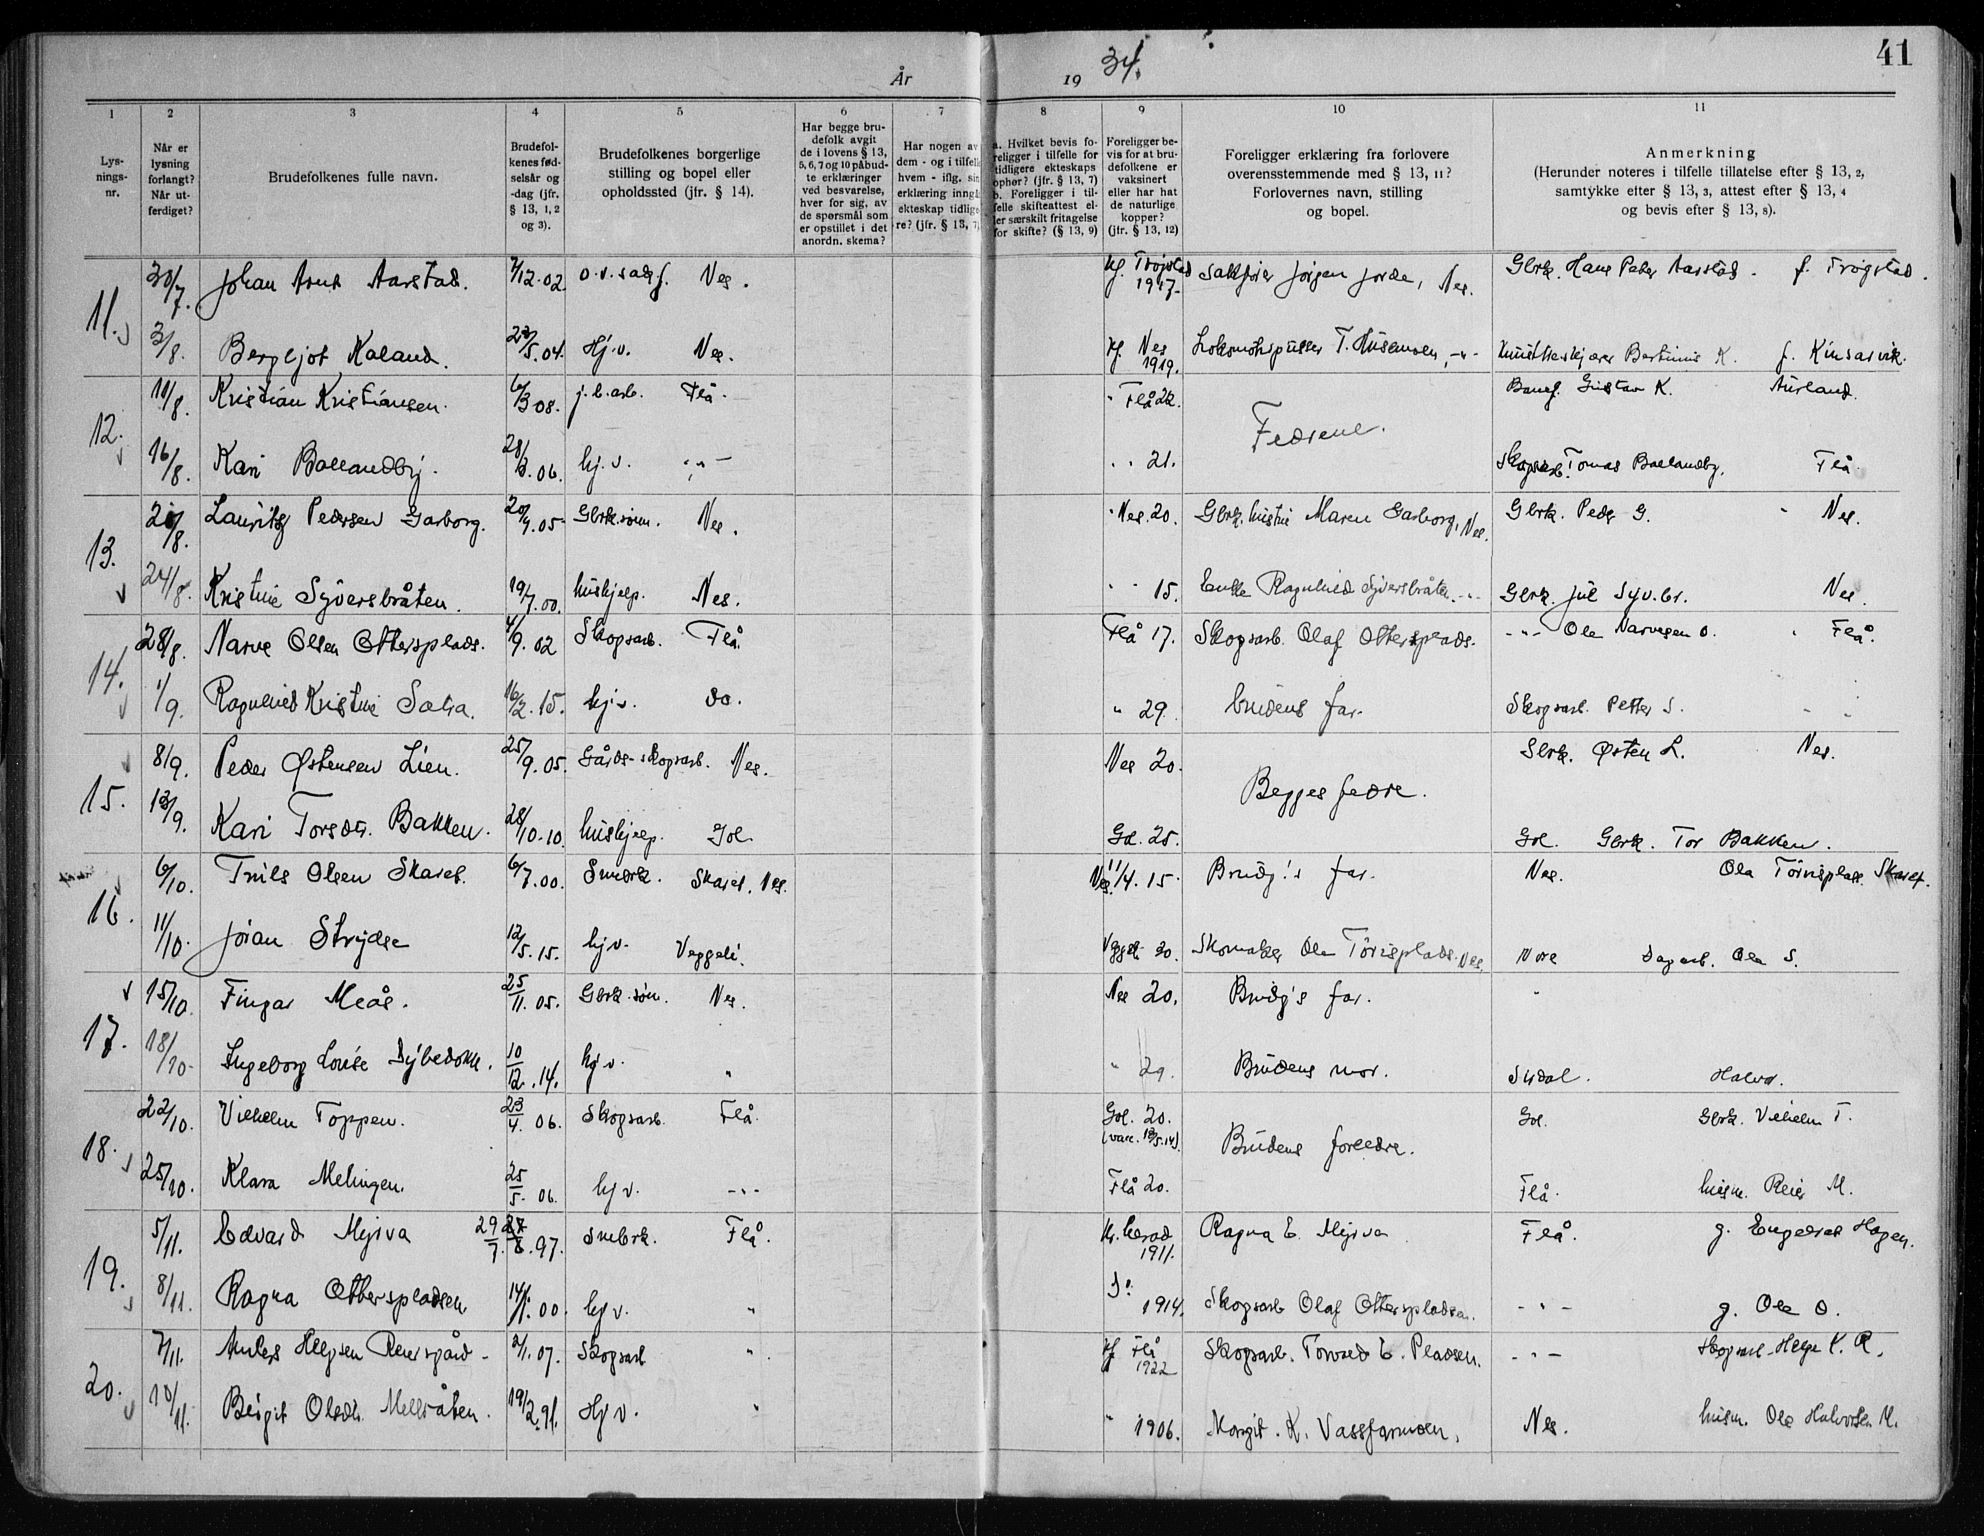 41
År 1934.
1 2 3 4 5 6 7 8 9 10 11
Lys-
nings-
nr.
Når er
lysning
forlangt?
Når ut-
ferdiget?
Brudefolkenes fulle navn.
Brudefol-
kenes fød-
selsår og
-dag (jfr.
§ 13, 1, 2
og 3).
Brudefolkenes borgerlige
stilling og bopel eller
opholdssted (jfr. § 14).
Har begge bru-
defolk avgit
de i lovens § 13,
5, 6, 7 og 10 påbud-
te erklæringer
ved besvarelse,
hver for sig, av
de spørsmål som
er opstillet i det
anordn. skema?
Har nogen av
dem - og i tilfelle
hvem - iflg. sin
erklæring inngå
ekteskap tidlige-
re? (jfr. § 13, 7)
a. Hvilket bevis fo-
religger i tilfelle for
tidligere ekteskaps
ophør? (jfr. § 13, 7)
b. Foreligger i til-
felle skifteattest el-
ler særskilt fritagelse
for skifte? (§ 13, 9)
Foreligger be-
vis for at bru-
defolkene er
vaksinert
eller har hat
de naturlige
kopper?
(jfr. § 13, 12)
Foreligger erklæring fra forlovere
overensstemmende med § 13, 11?
Forlovernes navn, stilling
og bopel.
Anmerkning
(Herunder noteres i tilfelle tillatelse efter § 13, 2,
samtykke efter § 13, 3, attest efter § 13, 4
og bevis efter § 13, 8).
11. 30/7. Johan Arnt Aarstad. 7/12.02. Nes. Trøgstad 1917. Jørgen Jorde, Nes. Gbrk. Hans Peter Aarstad. f. Trøgstad.
3/8. Bergljot Kaland. 23/5.04. Hj.v. Nes. Nes 1919. -"- Bertinius K. f. Kinsarvik.
12. 11/8. Kristian Kristiansen. 6/3 08. j.b.arb. Flå. " Flå 22. Fedrene. Gustav K. Aurland.
16/8. Kari hj.v. -"- " " 21. Skogsarb. Tomas Flå.
13. 20/8. Laurits Pedersen Garborg. 20/9.05. Gbrk.sønn. Nes. " Nes. 20. Gbrk. hustru Maren Garborg, Nes. Gbrk. Peder G. " Nes.
24/8. Kristine Syversbråten. 19/7.00. hushjelp. Nes. " " 15. Enke Ragnhild Syversbråten. -"- Gbrk. Jul Syv.br. Nes.
14. 28/8. Narve Olsen Ottersplads. 4/9.02 Skogsarb. Flå. Flå 17. Skogsarb. Olaf Ottersplads. -"- Ole Narvesen O. " Flå.
1/9. Ragnhild Kristine 16/2.15. hj.v. do. " 29. Brudens far. Skogsarb. Petter S. " "
15. 8/9. Peder Østensen Lien. 25/9.05. Gårds- skogsarb. Nes. Nes 20. Begges fedre. Gbrk. Østen L. Nes.
13/9. Kari Torsdtr. Bakken. 28/10.10. hushjelp. Gol Gol. 25. Gol. Gbrk. Tor Bakken.
16. 6/10. Truls Olsen Skaret. 6/7.00. Småbrk. Skaret, Nes. Nes. 11/4.15. Brudg's far. Nes. Ola Skaret.
11/10. Joran 12/5.15. hj.v. Veggeli. Veggeli 30. Skomaker Ola Nes. Nore Dagarb. Ola S.
17. 15/10. Fingar Meås. 25/11.05. Gbrk.sønn. Nes. Nes 20. Brudg's far. "
18/10. Ingeborg Louise 10/12.14. hj.v. " " 29. Brudens mor. Halvor.
18. 22/10. Vilhelm Toppen. 23/4. 06. Skogsarb. Flå. Gol. 20. (vacc. 13/5.14). Brudens foreldre. Gol. Gbrk. Vilhelm T.
25/10. Klara Melingen. 25/5. 06. hj v. -"- Flå 20. Flå. husm. Reier M.
19. 5/11. Edvard 29/7. 8.97. småbrk. Flå. 1911. Ragna E. Flå. g. Engebret Hagen.
8/11. Ragna Otterspladsen 14/1.00. hj v. " Do 1914. Skogsarb Olaf Otterspladsen. -"- g. Ole O.
20. 7/11. Anders Helgesen Reiersgård 2/1.07. Skogsarb " Flå 1922 Skogsarb. Torvald E. Pladsen. -"- Skogsarb. Helge K. R.
10/11. Birgit Olsdtr. 19/2.91. Hj v. " " 1906. Margit. K. Vassfarmoen. Nes. husm. Ole Halvorsen M.